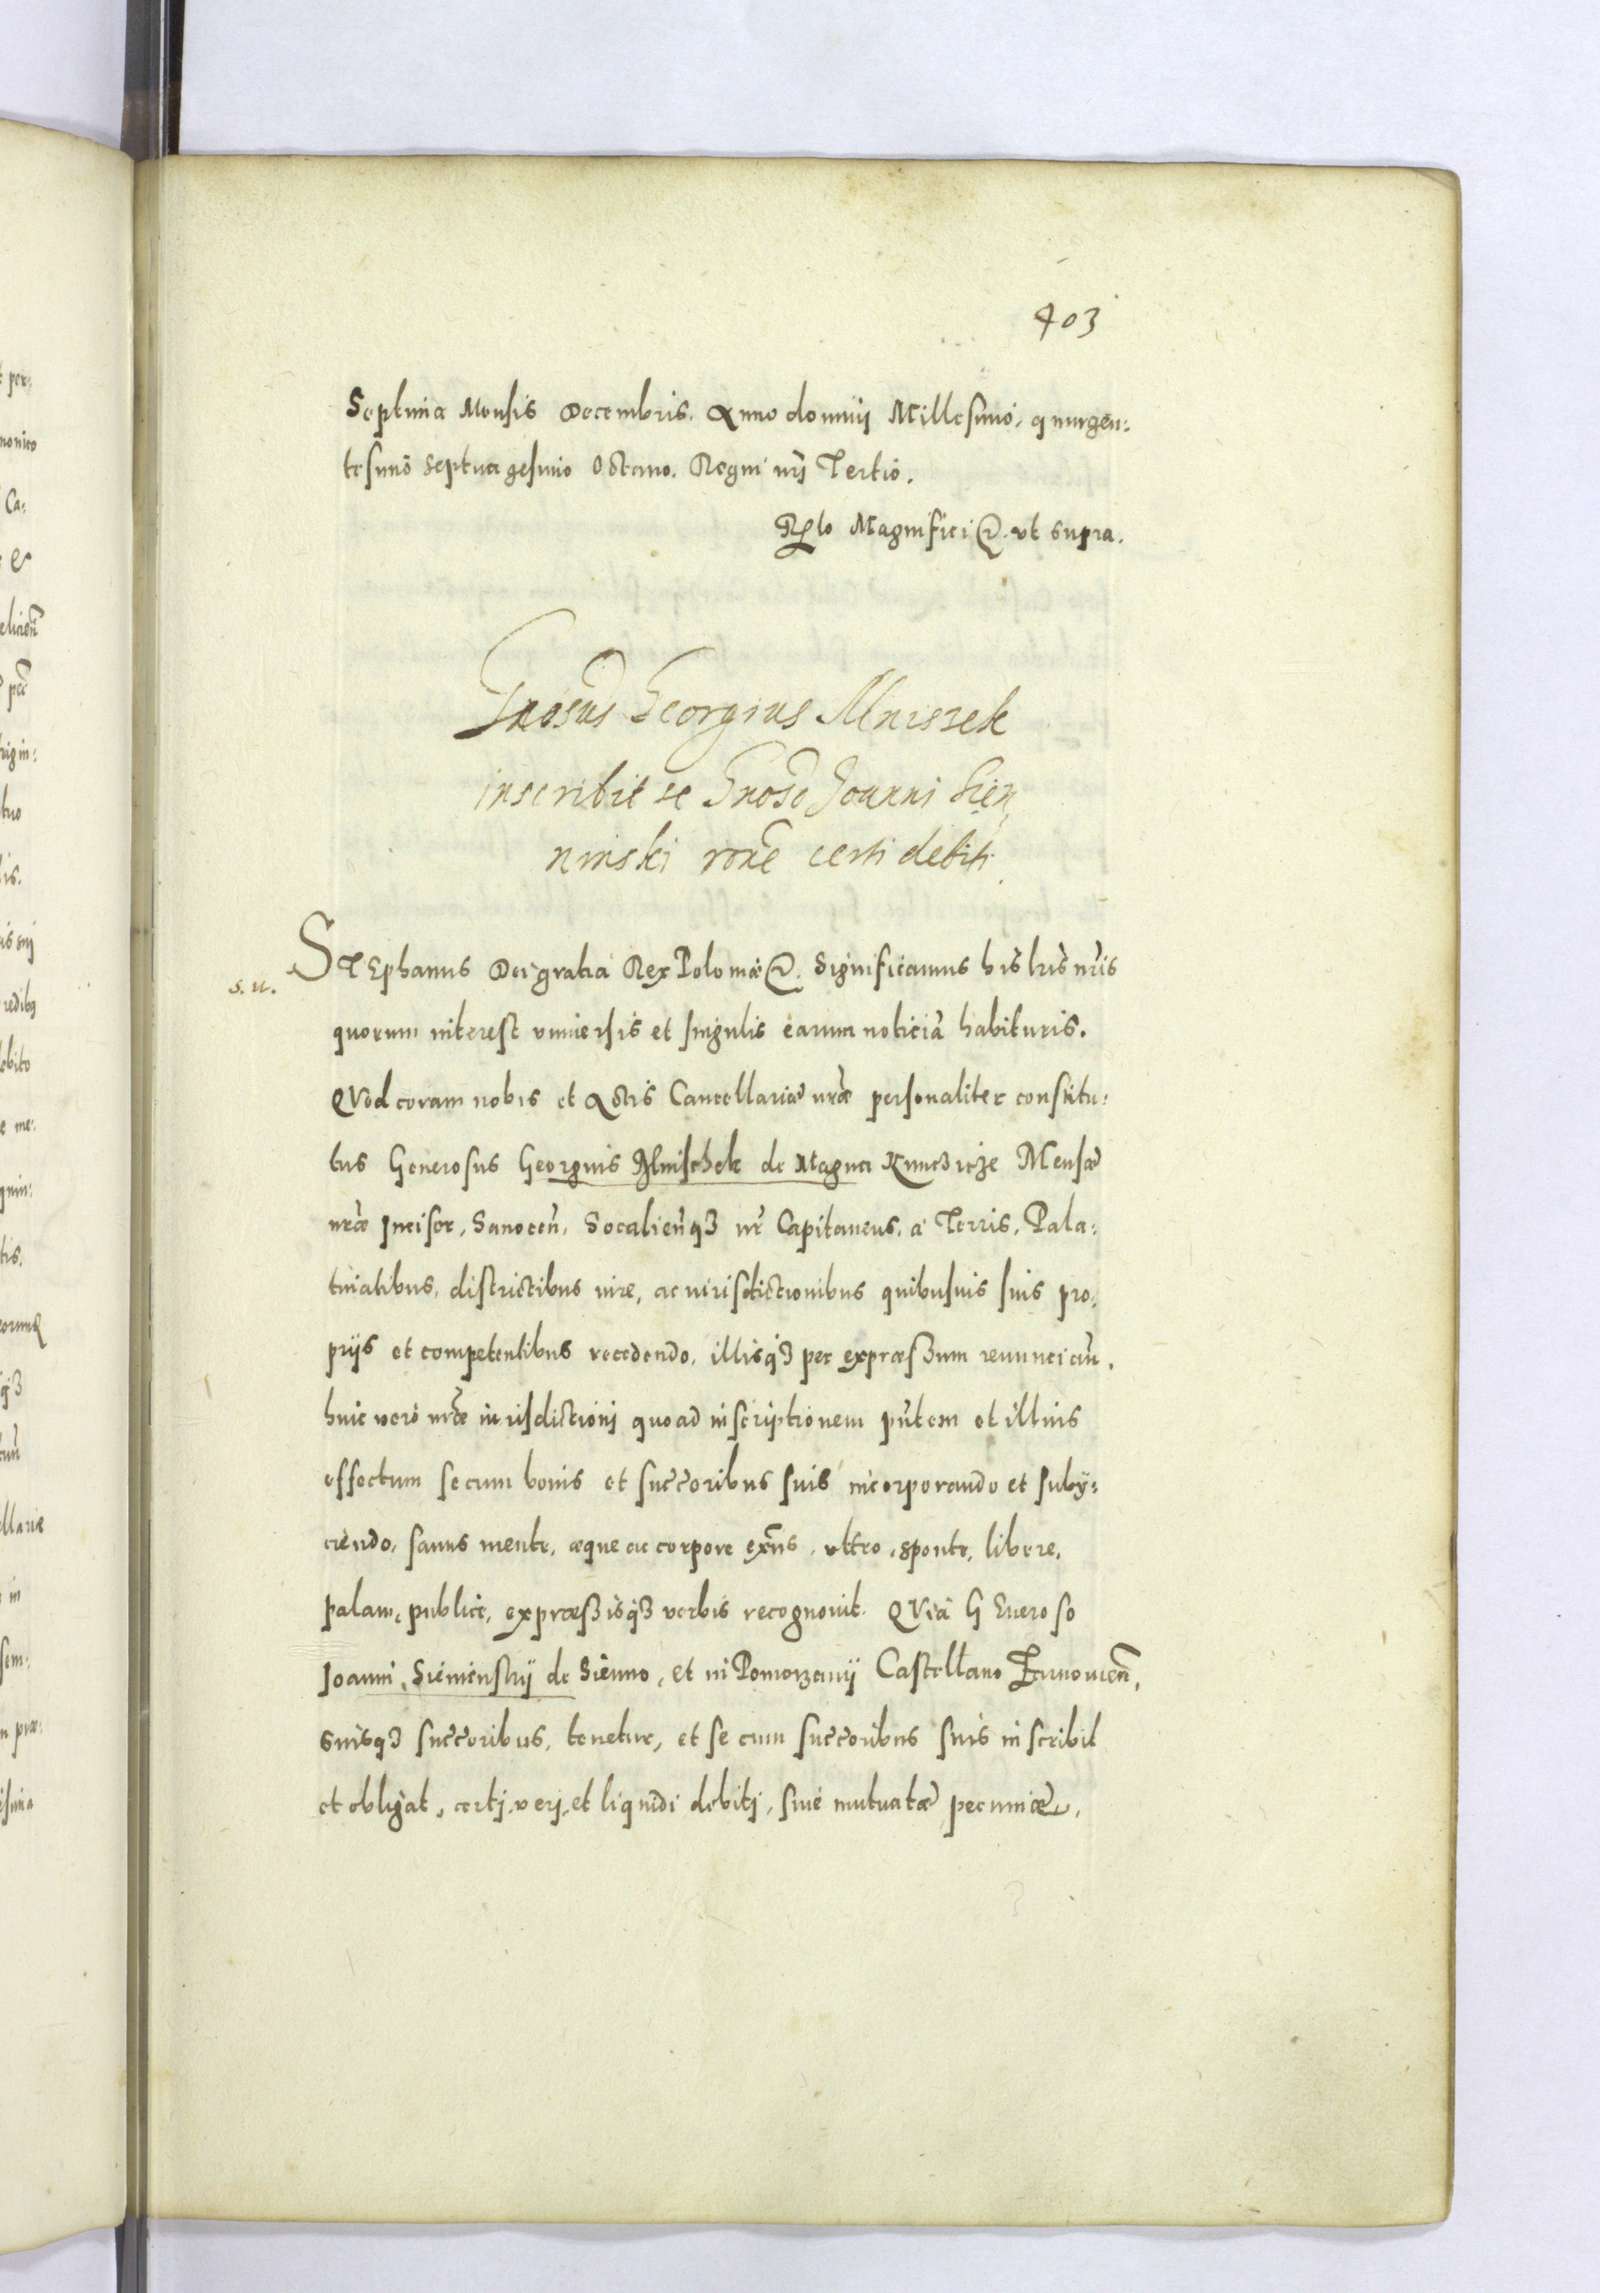 403
Septima Mensis Decembris. Anno domini Millesimo, quingen:
tesimo Septuagesimo Octauo. Regni nri Tertio.
Rlo Magnifici &. vt supra.
Gnosus Georgius Mniszek
inscribit se Gnoso Joanni Sien
ninski rone certi debiti
s. u.
STEphanus Dei gratia Rex Poloniæ &. Significamus his lris nris
quorum interest vniuersis et singulis earum noticia habituris.
QVod coram nobis et Actis Cancellariæ nræ personaliter constitu:
tus Generosus Georgius Mnischek de Magna Kunczicze Mensæ
nræ Incisor, Sanocen, Socalienqз nr Capitaneus, a Terris, Pala:
tinatibus, districtibus iure, ac iurisdictionibus quibusuis suis pro,
prijs et competentibus recedendo, illisqз per expræssum renuncian.
huic vero nræ iurisdictioni quoad inscriptionem pntem et illius
effectum se cum bonis et succoribus suis incorporando et subij:
ciendo, sanus mente, æque ac corpore exns, vltro, sponte, libere,
palam, publice, expræssisqз verbis recognouit. QVia GEneroso
Joanni, Sieninskij de Sienno, et in Pomorzanij Castellano Zarnouien,
suisqз succoribus, tenetur, et se cum succoribus suis inscribit
et obligat, certj, verj, et liquidi debitj, siue mutuatæ pecuniæ,